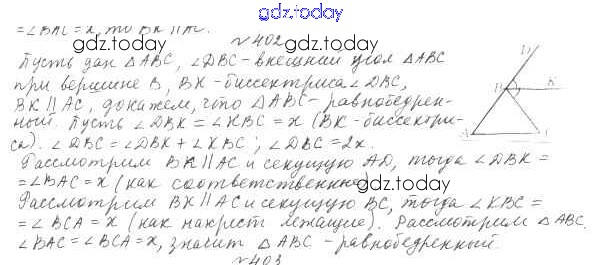 gdz.today
= ∠BAC = x, то BK ∥ AC.
gdz.today gdz.today
№402
Пусть дан △ABC, ∠DBC - внешний угол △ABC
при вершине B, BK - биссектриса ∠DBC,
BK ∥ AC, докажем, что △ABC - равнобедрен-
ный. Пусть ∠DBK = ∠KBC = x (BK - биссектри-
са). ∠DBC = ∠DBK + ∠KBC; ∠DBC = 2x.
Рассмотрим BK ∥ AC и секущую AD, тогда ∠DBK =
= ∠BAC = x (как соответственные)
gdz.today
Рассмотрим BK ∥ AC и секущую BC, тогда ∠KBC =
= ∠BCA = x (как накрест лежащие). Рассмотрим △ABC.
∠BAC = ∠BCA = x, значит △ABC - равнобедренный.
gdz.today
№403
D
B
K
A
C